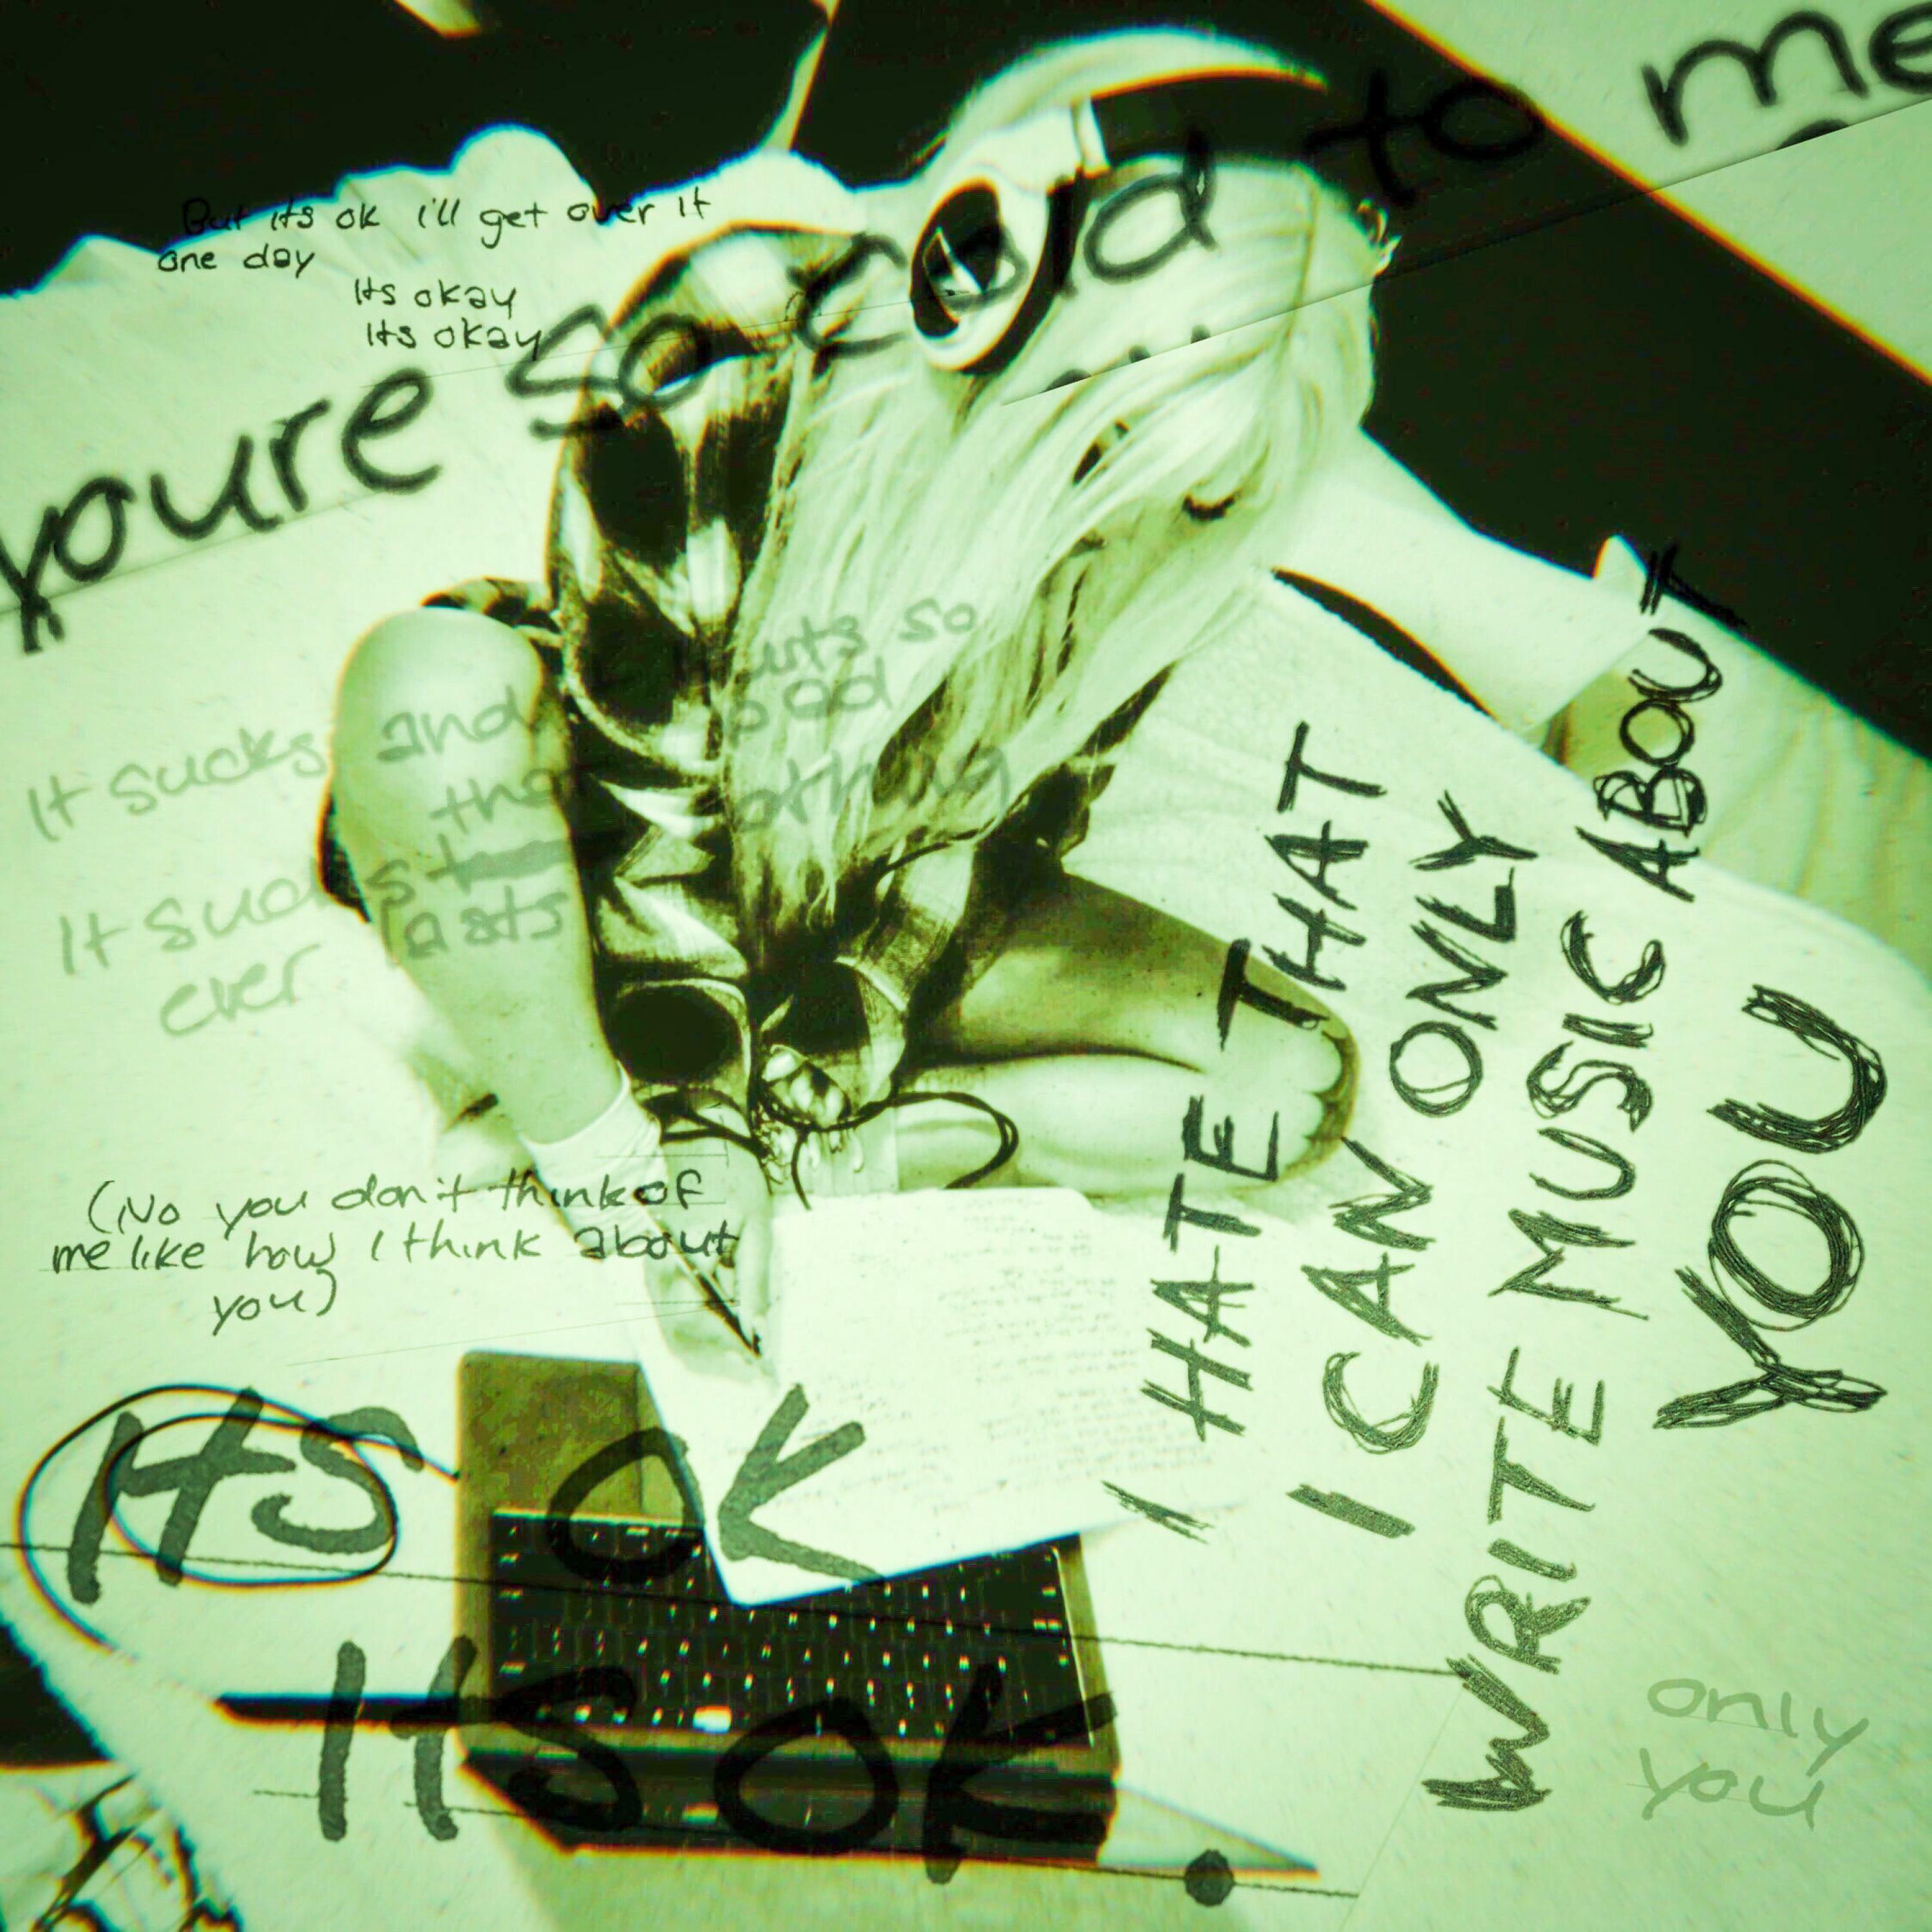 youre so cold to me
But its ok i'll get over it
one day
Its okay
Its okay
It sucks and it hurts so
bad
that nothing
It sucks
ever lasts
(No you don't think of
me like how I think about
you)
ITS OK
ITS OK.
I HATE THAT
I CAN ONLY
WRITE MUSIC ABOUT
YOU
only
you